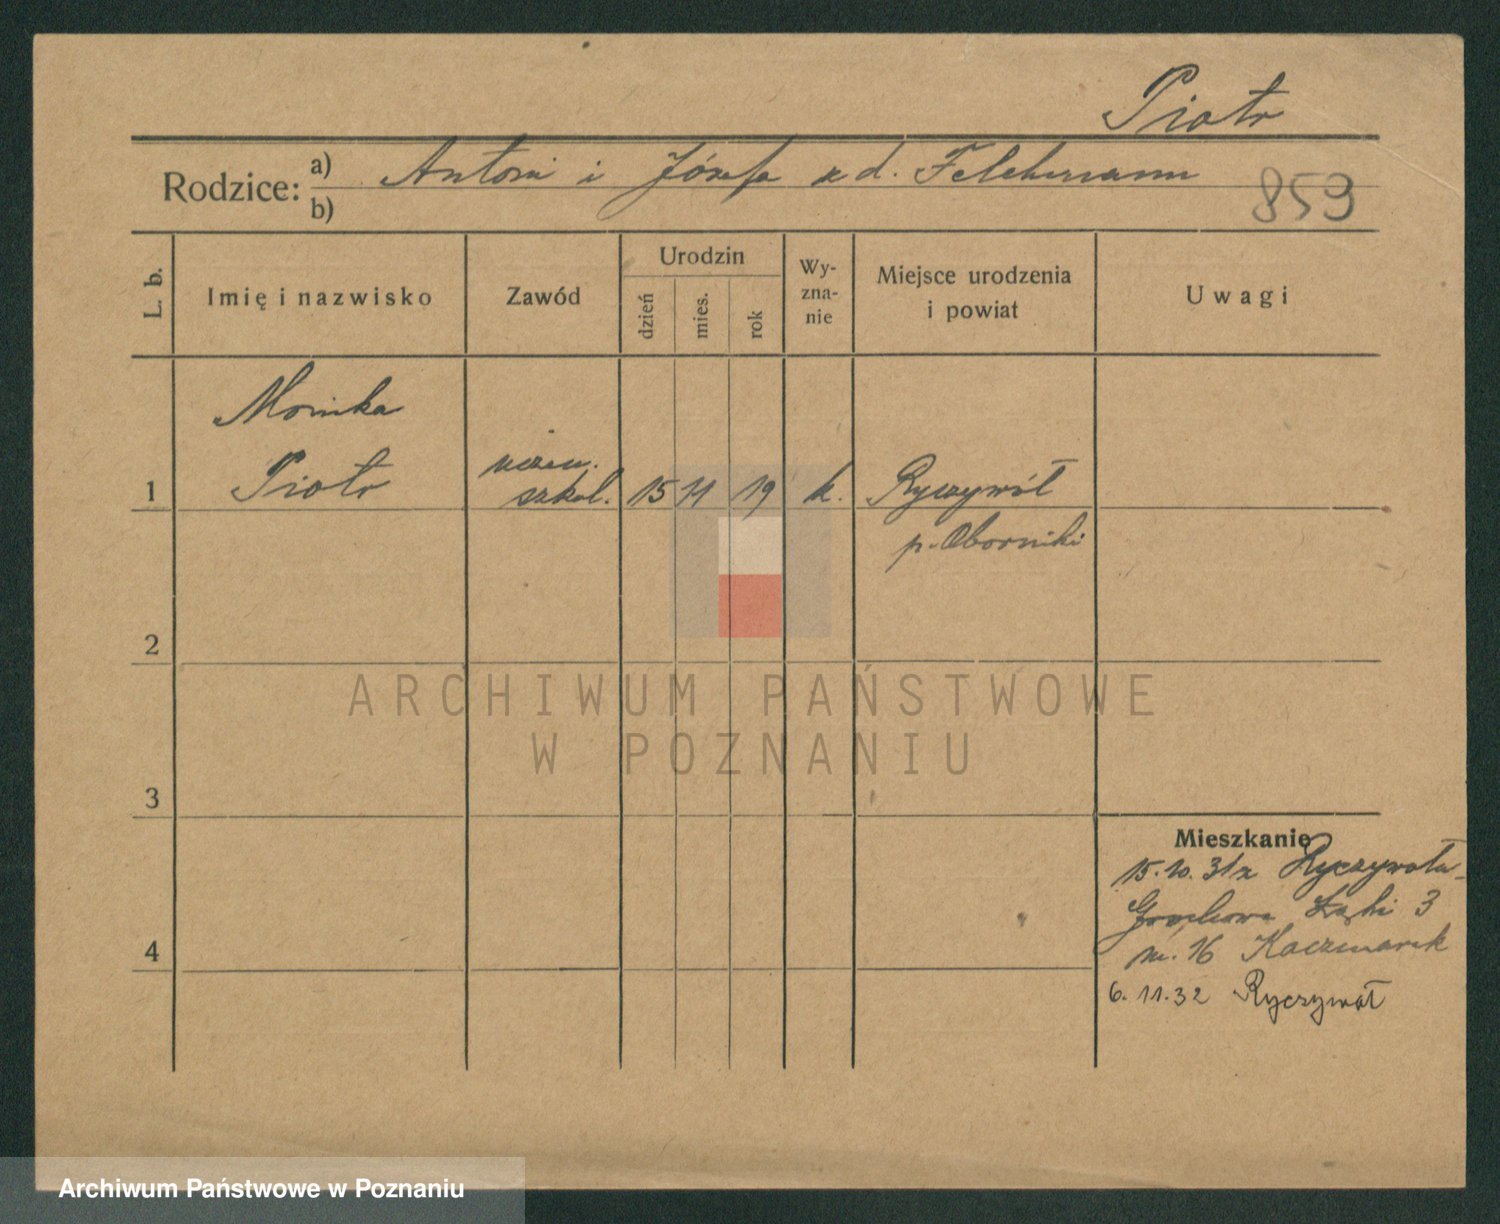 Piotr
Rodzice: a) Antoni i Józefa z d. Felchmann
b)
859
L. b.
Imię i nazwisko
Zawód
Urodzin
dzień
mies.
rok
Wy-
zna-
nie
Miejsce urodzenia
i powiat
Uwagi
Monika
1 Piotr
uczen.
szkol.
15 11 19 k. Ryczywół
p. Oborniki
2
3
4
Mieszkanie
15.10.31 z Ryczywołu-
Grochowe Łąki 3
m. 16 Kaczmarek
6.11.32 Ryczywół
ARCHIWUM PAŃSTWOWE
W POZNANIU
Archiwum Państwowe w Poznaniu